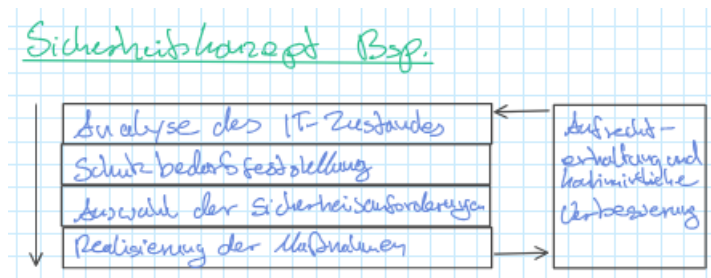 Sicherheitskonzept Bsp.
Analyse des IT-Zustandes
Schutzbedarfsfeststellung
Auswahl der Sicherheitsanforderungen
Realisierung der Maßnahmen
Aufrecht-
erhaltung und
kontinuierliche
Verbesserung